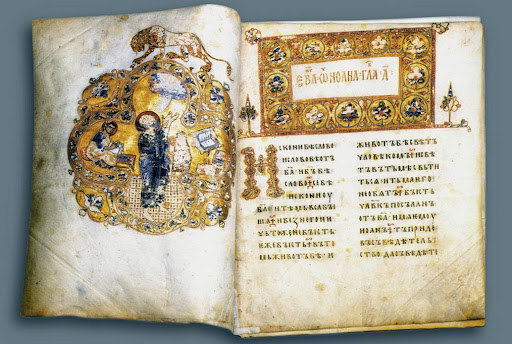 ЕВА҃ ѾИОАНА·ГЛА·А҃
ИСКОНИБѢСЛОВО
ИСЛОВОБѢОТЪ
БА҃ИБ҃ЪБѢ
СЛОВОСЕБѢ
ИСКОНИОУ
БА҃ИТѢМЬВЬСѦБЫ
ШѦИБЕЖНЕГОНИ
ЧЬТОЖЕНЕБЫСТЬ
ѤЖЕБЫСТЬВЪТО
МЬЖИВОТЪБѢИ
ЖИВОТЪБѢСВѢТЪ
ЧЛОВѢКОМЪИСВѢ
ТЪВЪТЬМѢСВЬТИ
ТЬСѦИТЬМАѤГО
НЕОБѨТЪБЫСТЬ
ЧЛВ҃КЪПОСЪЛАНЪ
ОТЪБА҃ИМѦѤМОУ
ИОАНЪТЪПРИДЕ
ВЪСЪВѢДѢТЕЛЬ
СТВОДАСЪВѢДѢТЕ